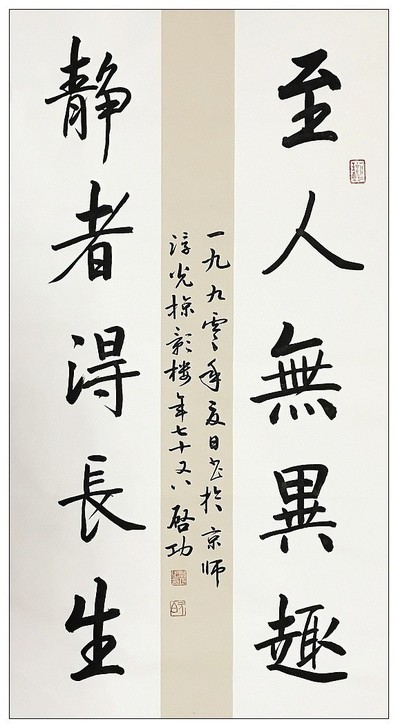 至人無異趣
静者淂長生
一九九零年夏日书於京师
浮光掠影楼年七十又八 啓功